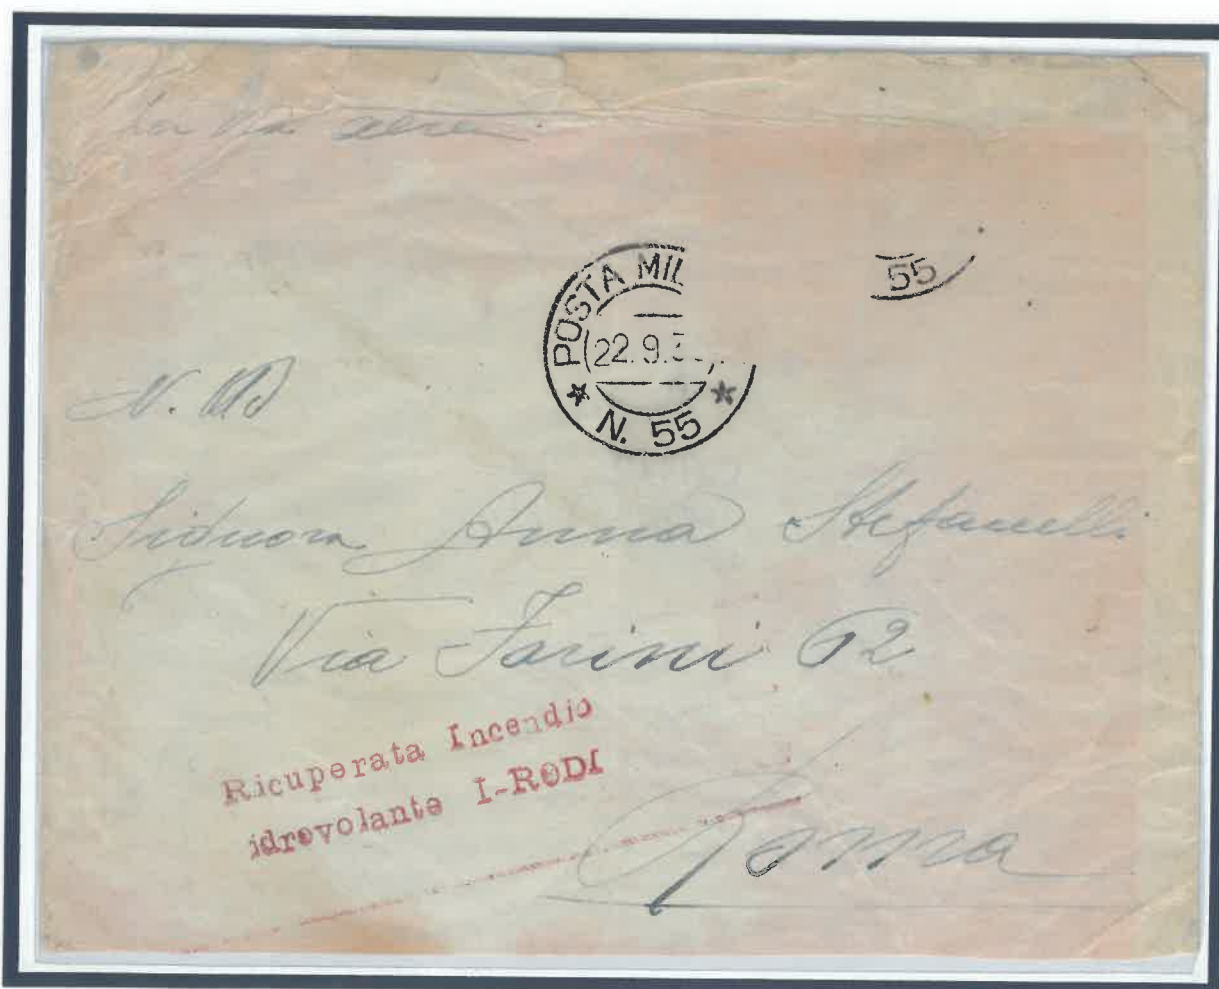 Per Via aerea
POSTA MIL
22.9.3
N. 55
55
N. D
Signora Anna Stefanelli
Via Farini 62
Ricuperata Incendio
idrovolante I-RODI
Roma